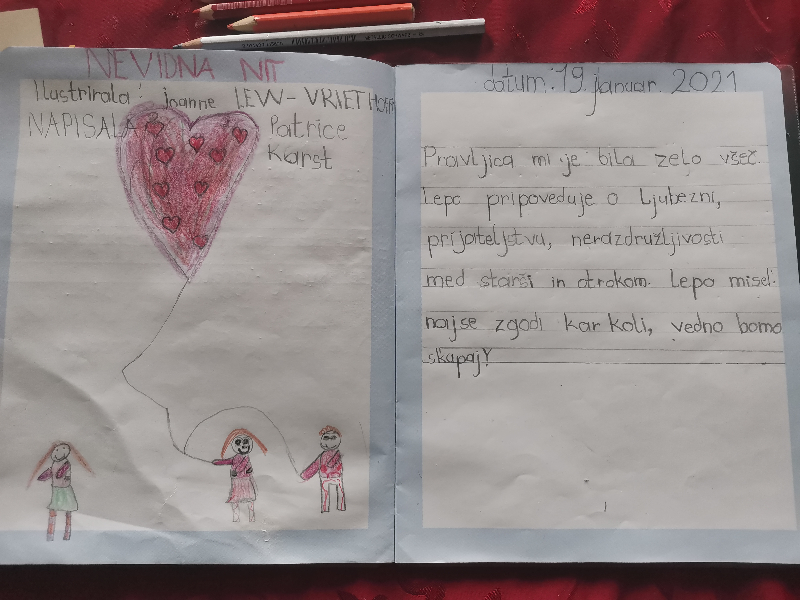 NEVIDNA NIT
Ilustrirala: joanne LEW-VRIETHOFF
NAPISALA: Patrice
Karst
datum: 19. januar. 2021
Pravljica mi je bila zelo všeč.
Lepo pripoveduje o ljubezni,
prijateljstvu, nerazdružljivosti
med starši in otrokom. Lepo misel:
naj se zgodi kar koli, vedno bomo
skupaj!